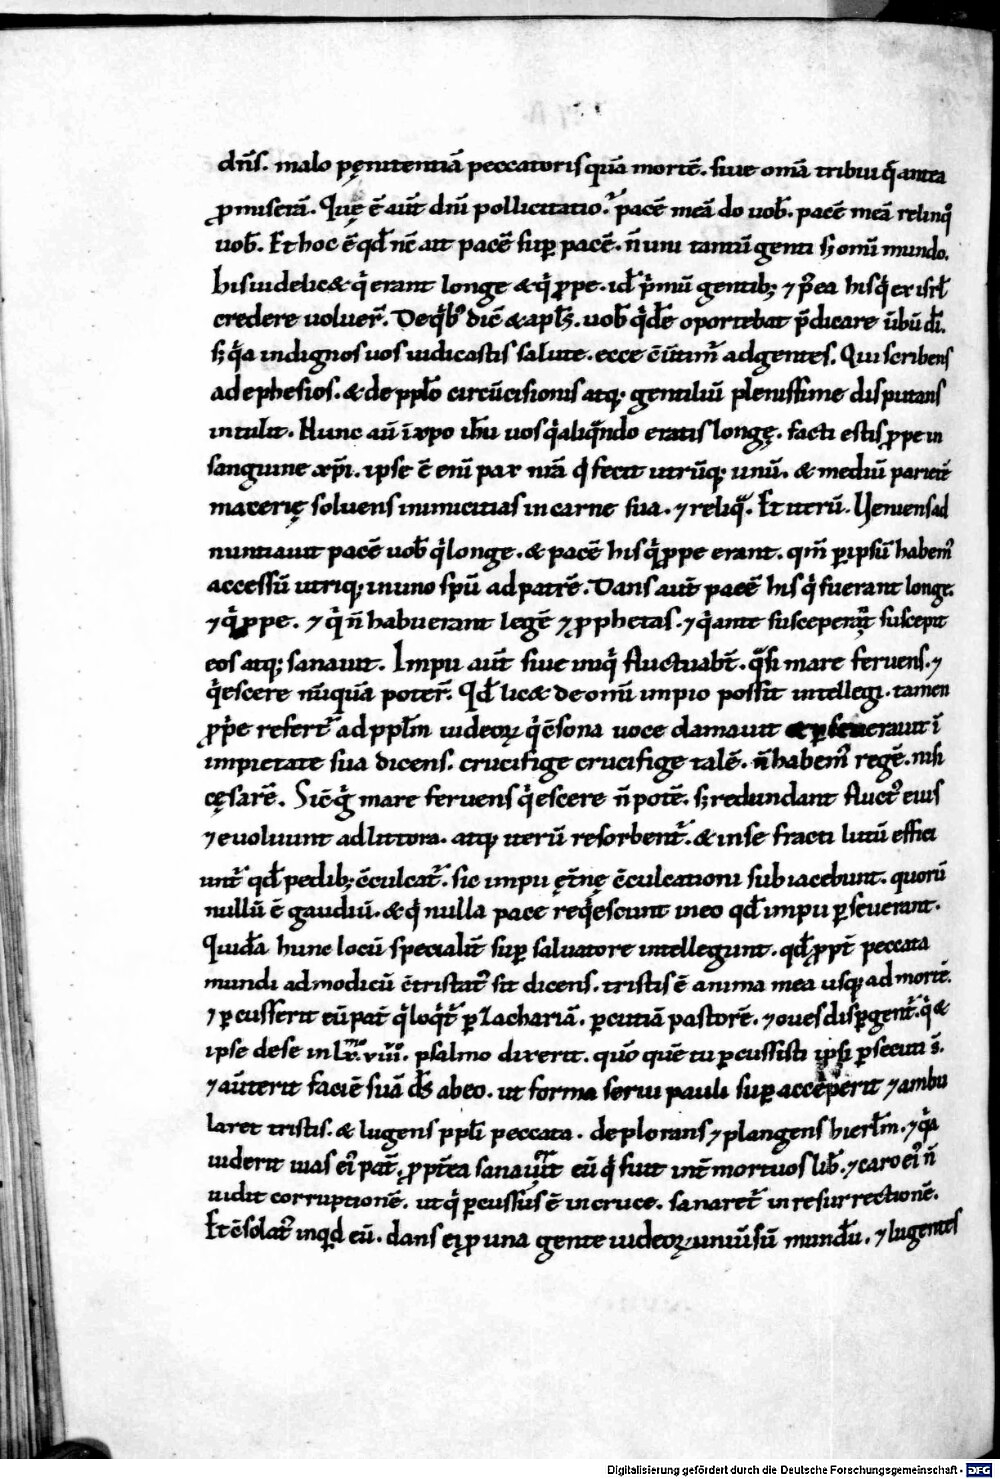 dn̄s. malo pęnitentiā peccatoris quā mortē. siue om̄a tribui q̄ antea
ꝓmiserā. Quę ē aut̄ dn̄i pollicitatio? pacē meā do uob̄. pacē meā relinq̊
uob̄. Et hoc ē qd̄ nc̄ ait pacē suꝑ pacē. n̄ uni tantū genti s; om̄i mundo.
his uidelic& qͥ erant longe &qͥ ꝓpe. id̄ pͥmū gentib; ⁊ p̄ea his qͥ ex isrl̄
credere uoluer̄. De qͥb᷒ dic̄ & apl̄s. uob̄ qͥdē oportebat p̄dicare ūbū dī.
s; qͥa indignos uos iudicastis salute. ecce c̄ūtim᷒ ad gentes. Qui scribens
ad ephesios. & de ppl̄o circūcisionis atq; gentiliū plenissime disputans
intulit. Nunc aū ī xp̄o ih̄u uos qͥ aliqᷓndo eratis longę. facti estis ꝓpe in
sanguine xp̄i. ipse ē enī pax nr̄a qͥ fecit utrūq; unū. & mediū pariet̄ē
macerię soluens inimicitias in carne sua. ⁊ reliqᷓ. Et iterū. Veniens ad
nuntiauit pacē uob̄ qͥ longe. & pacē his qͥ ꝓpe erant. qm̄ ꝑ ipsū habem᷒
accessū utriq; in uno sp̄u ad patrē. Dans aut̄ pacē his qͥ fuerant longe.
⁊ qͥ ꝓpe. ⁊ qͥ n̄ habuerant legē ⁊ ꝓphetas. ⁊ qͥ ante susceperant suscepit
eos atq; sanauit. Impii aut̄ siue iniqͥ fluctuabt̄. qᷓsi mare feruens. ⁊
qͥescere nūquā poter̄. Qd̄ lic& de om̄i impio possit intellegi. tamen
ꝓpͥe refert᷒ ad ppl̄m iudeoꝝ qͥ c̄sona uoce clamauit & ꝑseuerauit ī
impietate sua dicens. crucifige crucifige talē. n̄ habem᷒ regē. nisi
cęsarē. Sic̄ gͦ mare feruens qͥescere n̄ potē. s; redundant fluct᷒ eius
⁊ euoluunt ad littora. atq; iterū resorbent᷒. & in se fracti lutū effici
unt᷒ qd̄ pedib; c̄culcat᷒. sic impii ęt̄nę c̄culcationi subiacebunt. quorū
nullū ē gaudiū. & qͥ nulla pace reqͥescunt in eo qd̄ impii ꝑseuerant.
Quidā hunc locū specialit̄ suꝑ saluatore intellegunt. qd̄ ꝓpt̄ peccata
mundi ad modicū c̄tristat᷒ sit dicens. tristis ē anima mea usq; ad mortē.
⁊ ꝑcusserit eū pat̄ qͥ loqͥt᷒ ꝑ zachariā. ꝑcutiā pastorē. ⁊ oues disꝑgent᷒. qͥ &
ipse de se in lx.viii. psalmo dixerit. quō quē tu ꝑcussisti ipsi ꝑsecuti s̄.
⁊ aūterit faciē suā d̄s ab eo. ut forma serui pauli suꝑ acceperit ⁊ ambu
laret tristis. & lugens ppl̄i peccata. deplorans ⁊ plangens hierl̄m. ⁊ qͥa
uiderit uias ei᷒ pat̄. ꝓpt̄ea sanauerit eū qͥ fuit int̄ mortuos lib̄. ⁊ caro ei᷒ n̄
uidit corruptionē. ut qͥ ꝑcussus ē in cruce. sanaret᷒ in resurrectionē.
Et c̄solat᷒ inqd̄ eū. dans ei ꝓ una gente iudeoꝝ uniūsū mundū. ⁊ lugentes
Digitalisierung gefördert durch die Deutsche Forschungsgemeinschaft - DFG